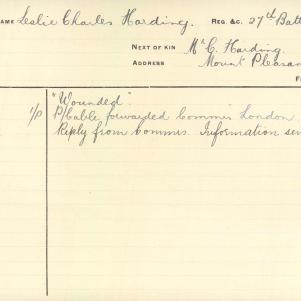 NAME Leslie Charles Harding. REG. &C. 27th Batt
NEXT OF KIN Mr C. Harding.
ADDRESS Mount Pleasan
"Wounded".
1/p P/Cable forwarded Commis London.
Reply from Commis. Information sen